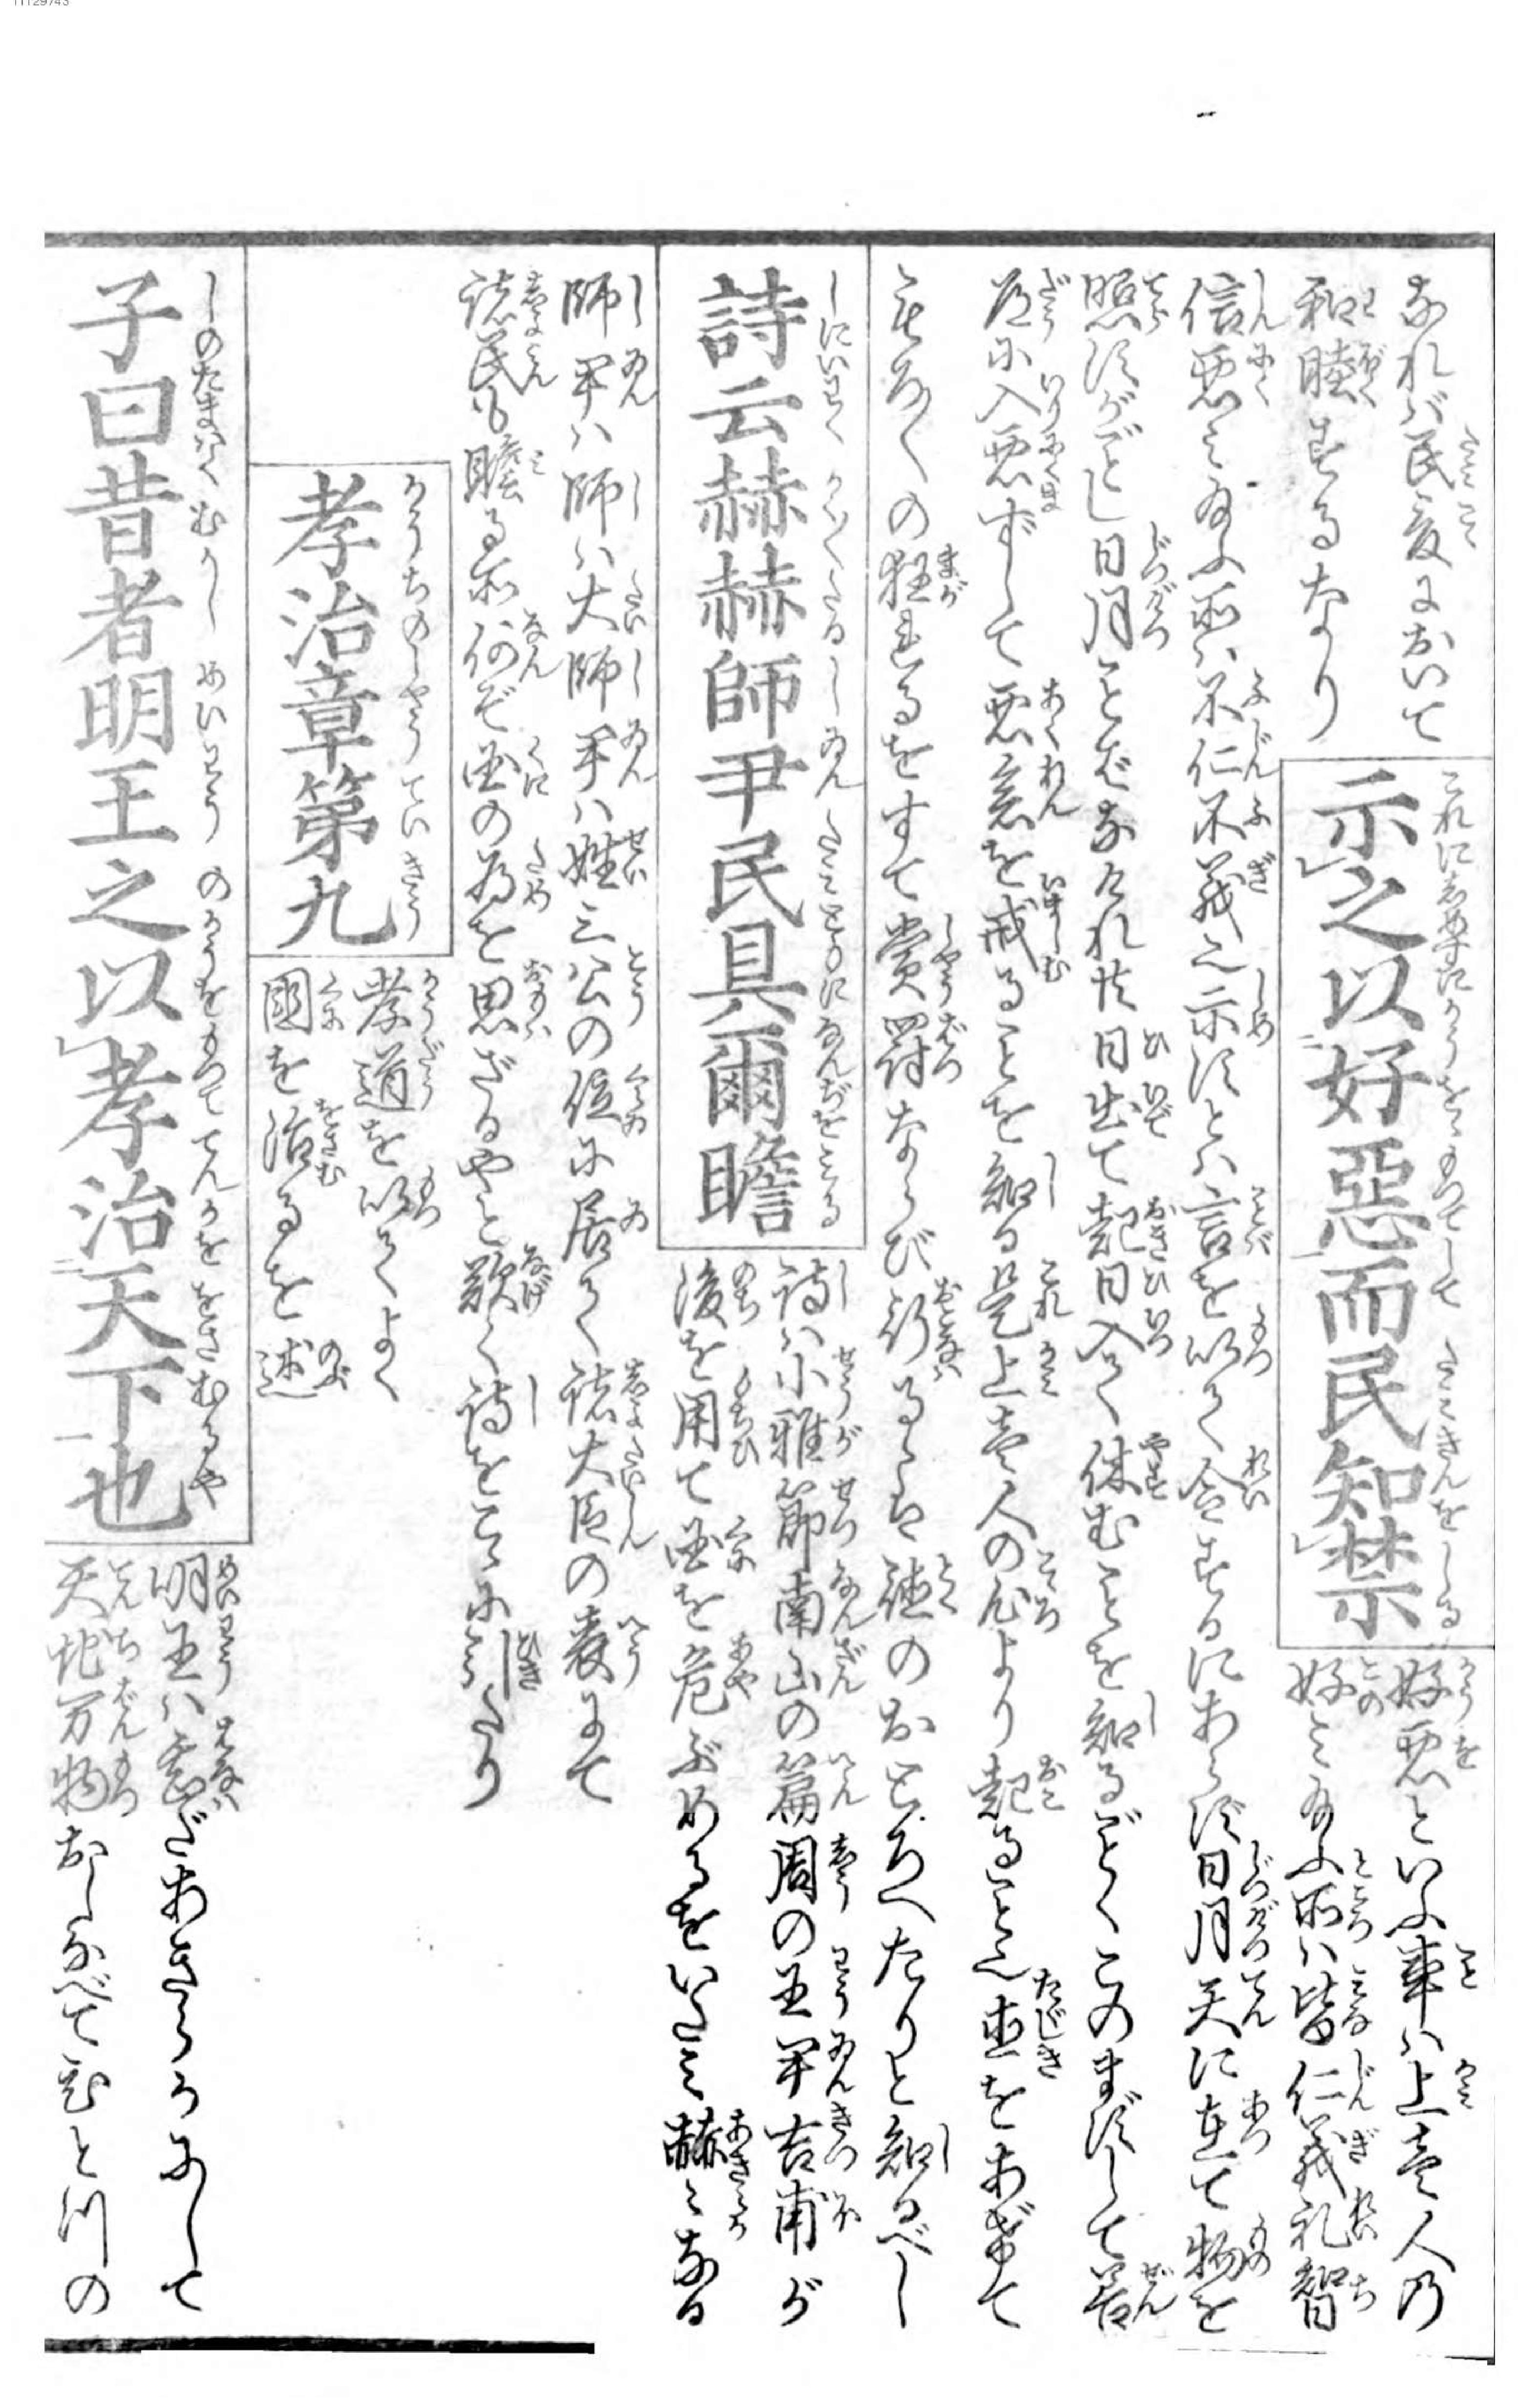 なれバ民爰において
和睦するなり
示之以好惡而民知禁
好悪といふ事ハ上壱人乃
好ミ給ふ所ハ皆仁義礼智
信悪ミ給ふ所ハ不仁不義也示すとハ言を以て令するにあらず日月天に在て物を
照すがごとし日月ことばなけれ共日出て起日入て休むことを知るごとくこのまずして善
道に入悪ずして悪念を戒ることを知る是上壱人の心より起ること也直をあげて
もろ〳〵の狂れるをすて賞罰ならび行るゝは徳のおとろへたりと知るべし
詩云赫赫師尹民具爾瞻
詩ハ小雅節南山の篇周の王尹吉甫が
後を用て国を危ぶめるをいたミ赫々なる
師尹ハ師ハ大師尹ハ姓三公の位に居て諸大臣の表にて
諸民も瞻る所何ぞ国の為を思ハざるやと歎く詩をこゝに引たり
孝治章第九
孝道を以てよく
國を治るを述
子曰昔者明王之以孝治天下也
明王ハ甚だあきらかにして
天地万物おしなべてひとつの